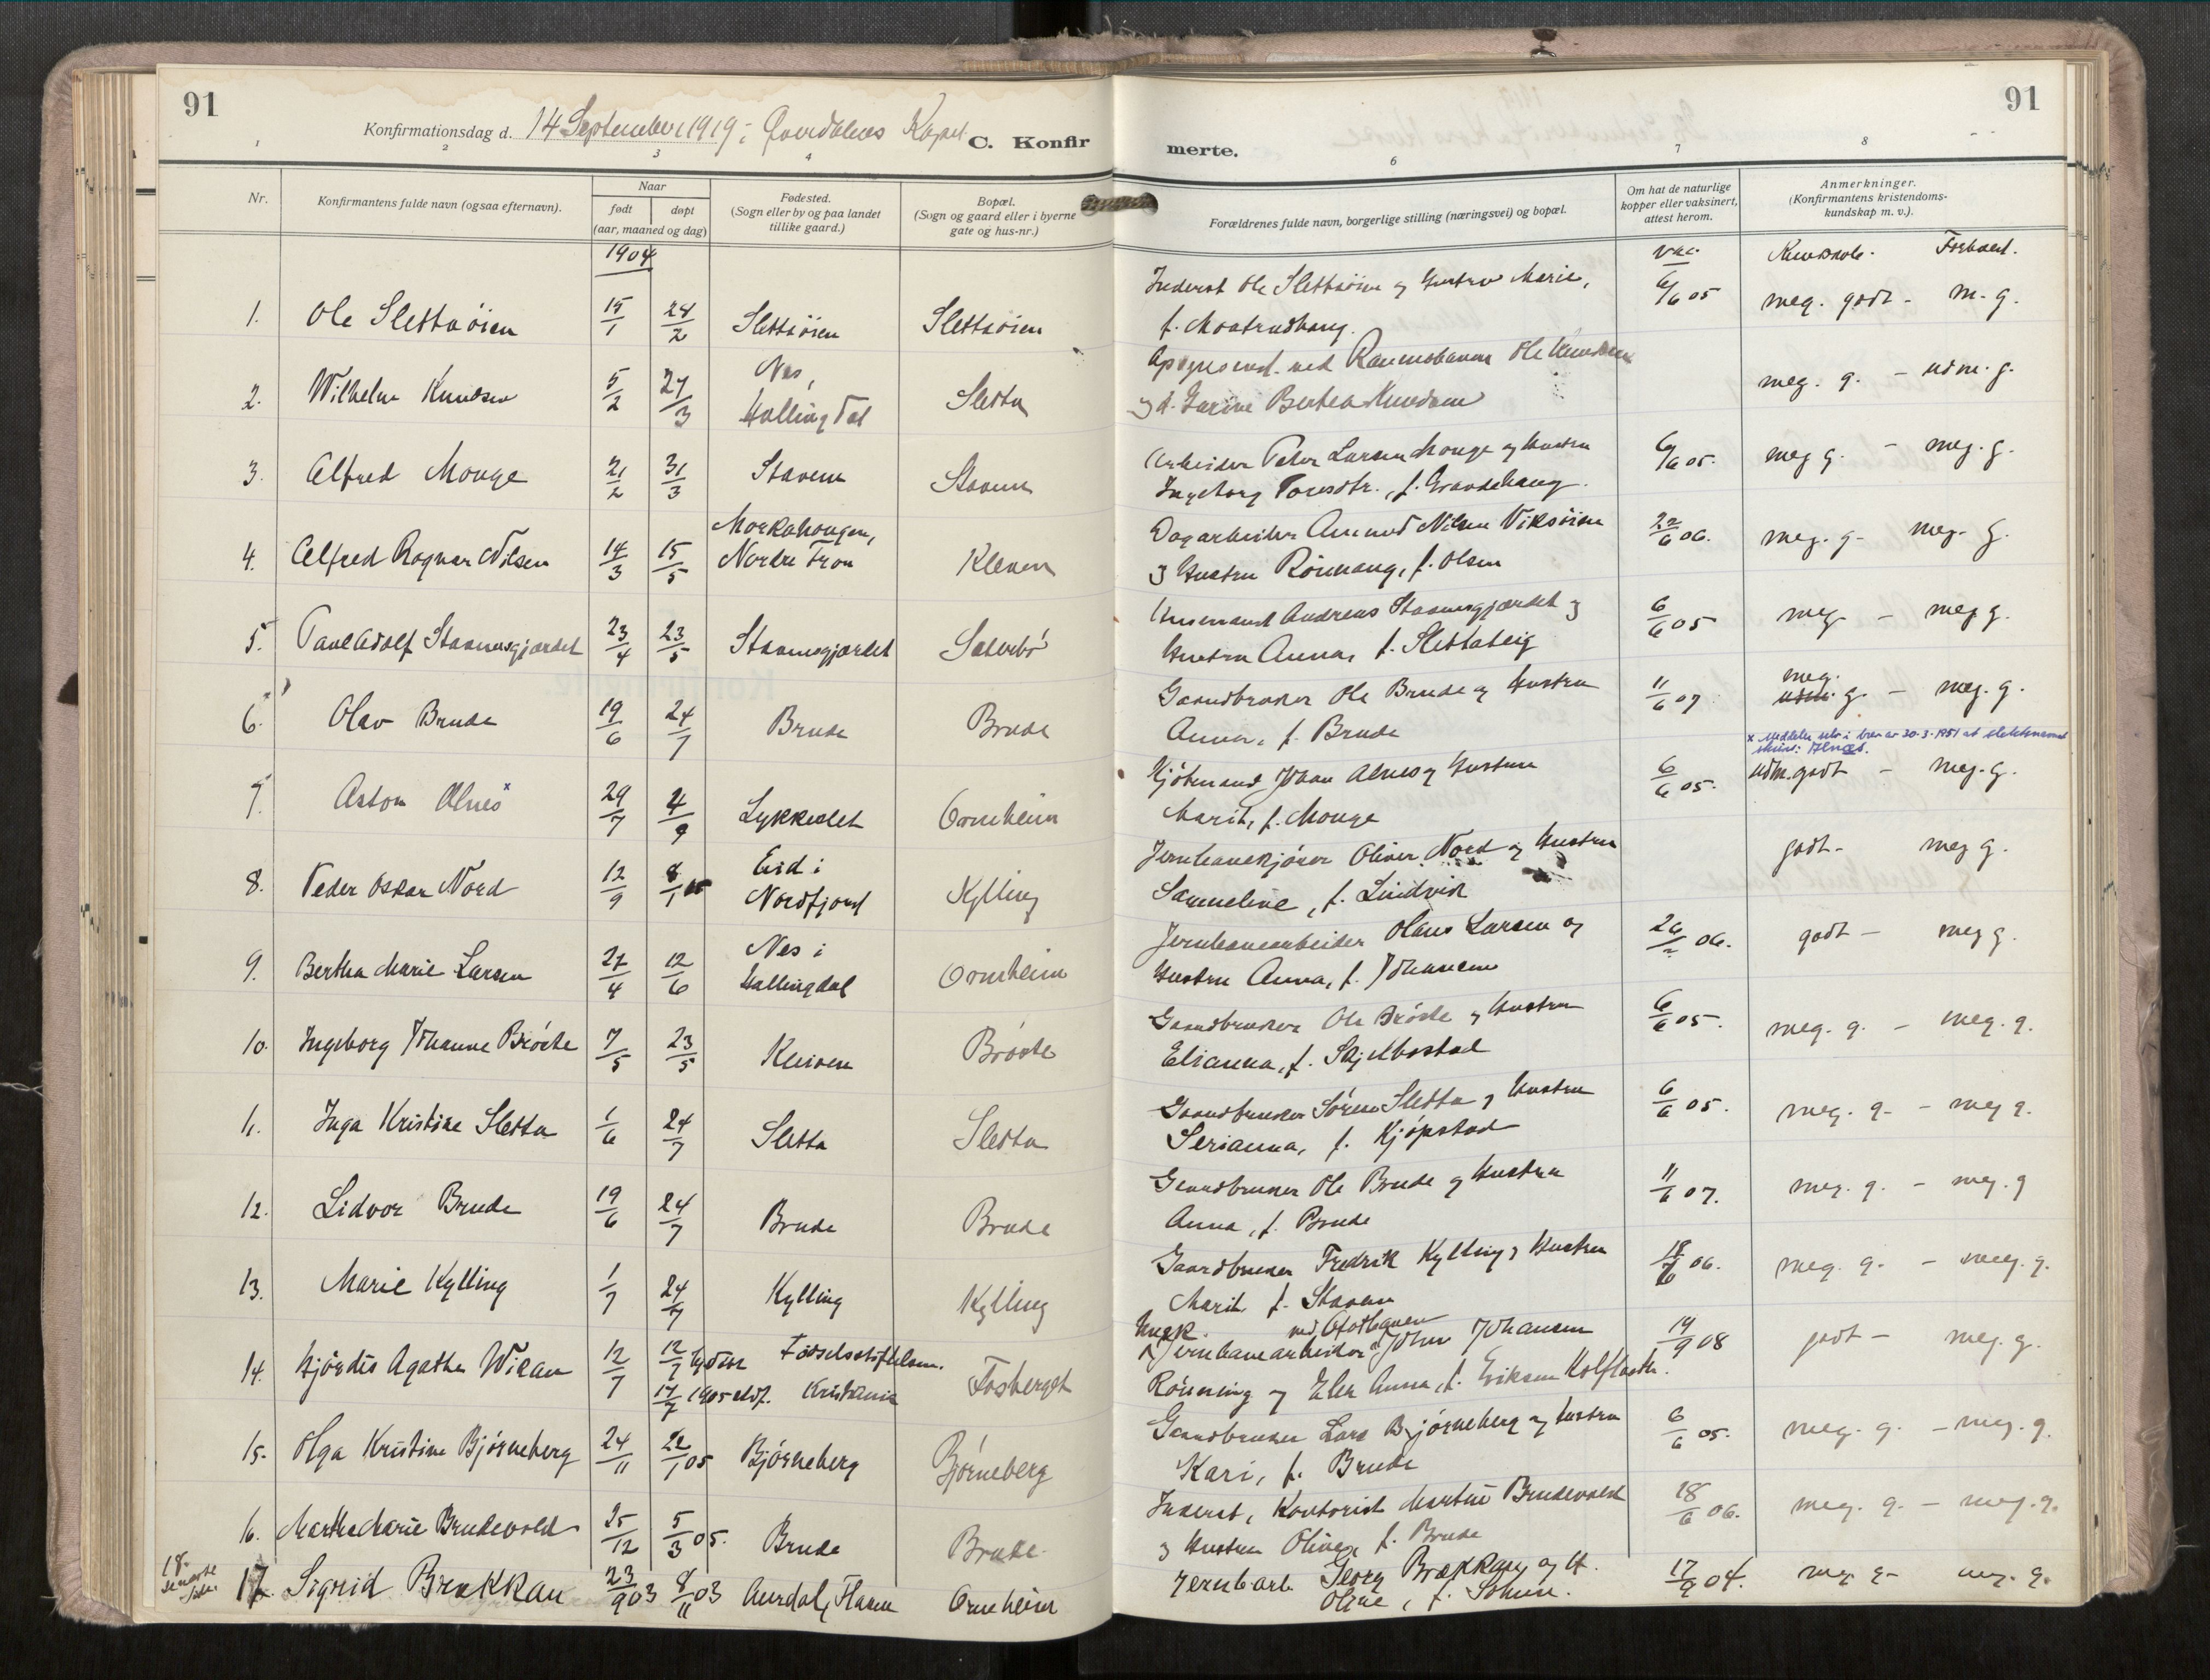 91
91
Konfirmationsdag d. 14 September 1919 i Øverdalens Kapel.
C. Konfir
merte.
1 2 3 4 6 7 8
Nr.
Konfirmantens fulde navn (ogsaa efternavn).
Naar
født døpt
(aar, maaned og dag)
Fødested.
(Sogn eller by og paa landet
tillike gaard.)
Bopæl.
(Sogn og gaard eller i byerne
gate og hus-nr.)
Forældrenes fulde navn, borgerlige stilling (næringsvei) og bopæl.
Om hat de naturlige
kopper eller vaksinert,
attest herom.
Anmerkninger.
(Konfirmantens kristendoms-
kundskap m. v.).
1904
vac. Kundskab. Forhold.
Inderst Ole Slettaöien og Hustru Marie,
1. Ole Slettaöien 15/1 24/2 Slettaöien Slettaöien 6/6 05 meg. godt - m. g.
f. Monatrudhaug.
Nes,
Opsynsmd. ved Raumabanen Ole Knudsen
2. Wilhelm Knudsen 5/2 27/3 Hallingdal Sletta meg. g. - udm. g.
og h. Gurine Berthea Knudsen
Arbeider Peter Larsen Monge og Hustru
3. Alfred Monge 21/2 31/3 Stavem Stavem 6/6 05. meg g. - meg. g.
Ingeborg Toresdtr., f. Grandehaug.
Morkahougen,
Dagarbeider Amund Nilsen Viksöien
4. Alfred Ragnar Nilsen 14/3 15/5 Nordre Fron Kleven 22/6 06. meg. g. meg. g.
og Hustru Rönnaug, f. Olsen
Husmand Andreas Stavemsgjærdet og
5. Paul Adolf Stavemsgjærdet 23/4 23/5 Stavemsgjærdet Sæterbö 6/6 05 meg - meg g.
Hustru Anna, f. Slettateig
Gaardbruker Ole Brude og Hustru
6. Olav Brude 19/6 24/7 Brude Brude 11/6 07 meg. udm. g. - meg. g.
Anna, f. Brude
x Meddeler selv i brev av 30-3-1951 at slektsnavnet
skrives: Alnæs.
Kjöbmand Johan Alnes og Hustru
7. Aston Alnes x 29/7 4/9 Lykkeslet Ormheim 6/6 05. udm. godt - meg. g.
Marit, f. Monge
Eid i
Jernbanekjörer Oliver Nord og Hustru
8. Peder Oskar Nord 12/9 8/1 05 Nordfjord Kylling godt - meg g.
Sameline, f. Lindvik
Nes i
Jernbanearbeider Olaus Larsen og
9. Bertha Marie Larsen 27/4 12/6 Hallingdal Ormheim 26/2 06. godt - meg g.
Hustru Anna, f. Johansen
Gaardbruker Ole Bröste og Hustru
10. Ingeborg Johanne Bröste 7/5 23/5 Kleiven Bröste 6/6 05. meg. g. - meg. g.
Elianna, f. Skjelbostad
Gaardbruker Sören Sletta og Hustru
11. Inga Kristine Sletta 1/6 24/7 Sletta Sletta 6/6 05. meg. g. - meg g.
Serianna, f. Kjöpstad
Gaardbruker Ole Brude og Hustru
12. Lidvor Brude 19/6 24/7 Brude Brude 11/6 07. meg. g. - meg. g
Anna, f. Brude
Gaardbruker Fredrik Kylling og Hustru
13. Marie Kylling 1/7 24/7 Kylling Kylling 18/6 06. meg. g. - meg. g.
Marit f. Stavem
Ungk. ved Ofotbanen
Jernbanearbeider John Johansen
14. Hjördis Agathe Wikan 12/7 12/7 hjdøbt Födselsstiftelsen. Fosberget 14/9 08 godt - meg. g.
17/7 1905 stdf. Kristiania
Rönning og Elen Anna, f. Eriksen
Gaardbruker Lars Bjørneberg og Hustru
15. Olga Kristine Bjørneberg 24/11 22/1 05 Bjørneberg Bjørneberg 6/6 05. meg. g. - meg. g.
Kari, f. Brude
Inderst, Kontorist Martin Brudevold
16. Martha Marie Brudevold 25/12 5/3 05. Brude Brude 18/6 06. meg. g. - meg. g.
og Hustru Olive, f. Brude
18.
seneste
side
Jernb.arb. Georg Brækkan og H.
17. Sigrid Brækkan 23/9 03 8/11 03 Aurdal, Flaam Ormheim 17/9 04. meg g. - meg. g.
Oline, f.